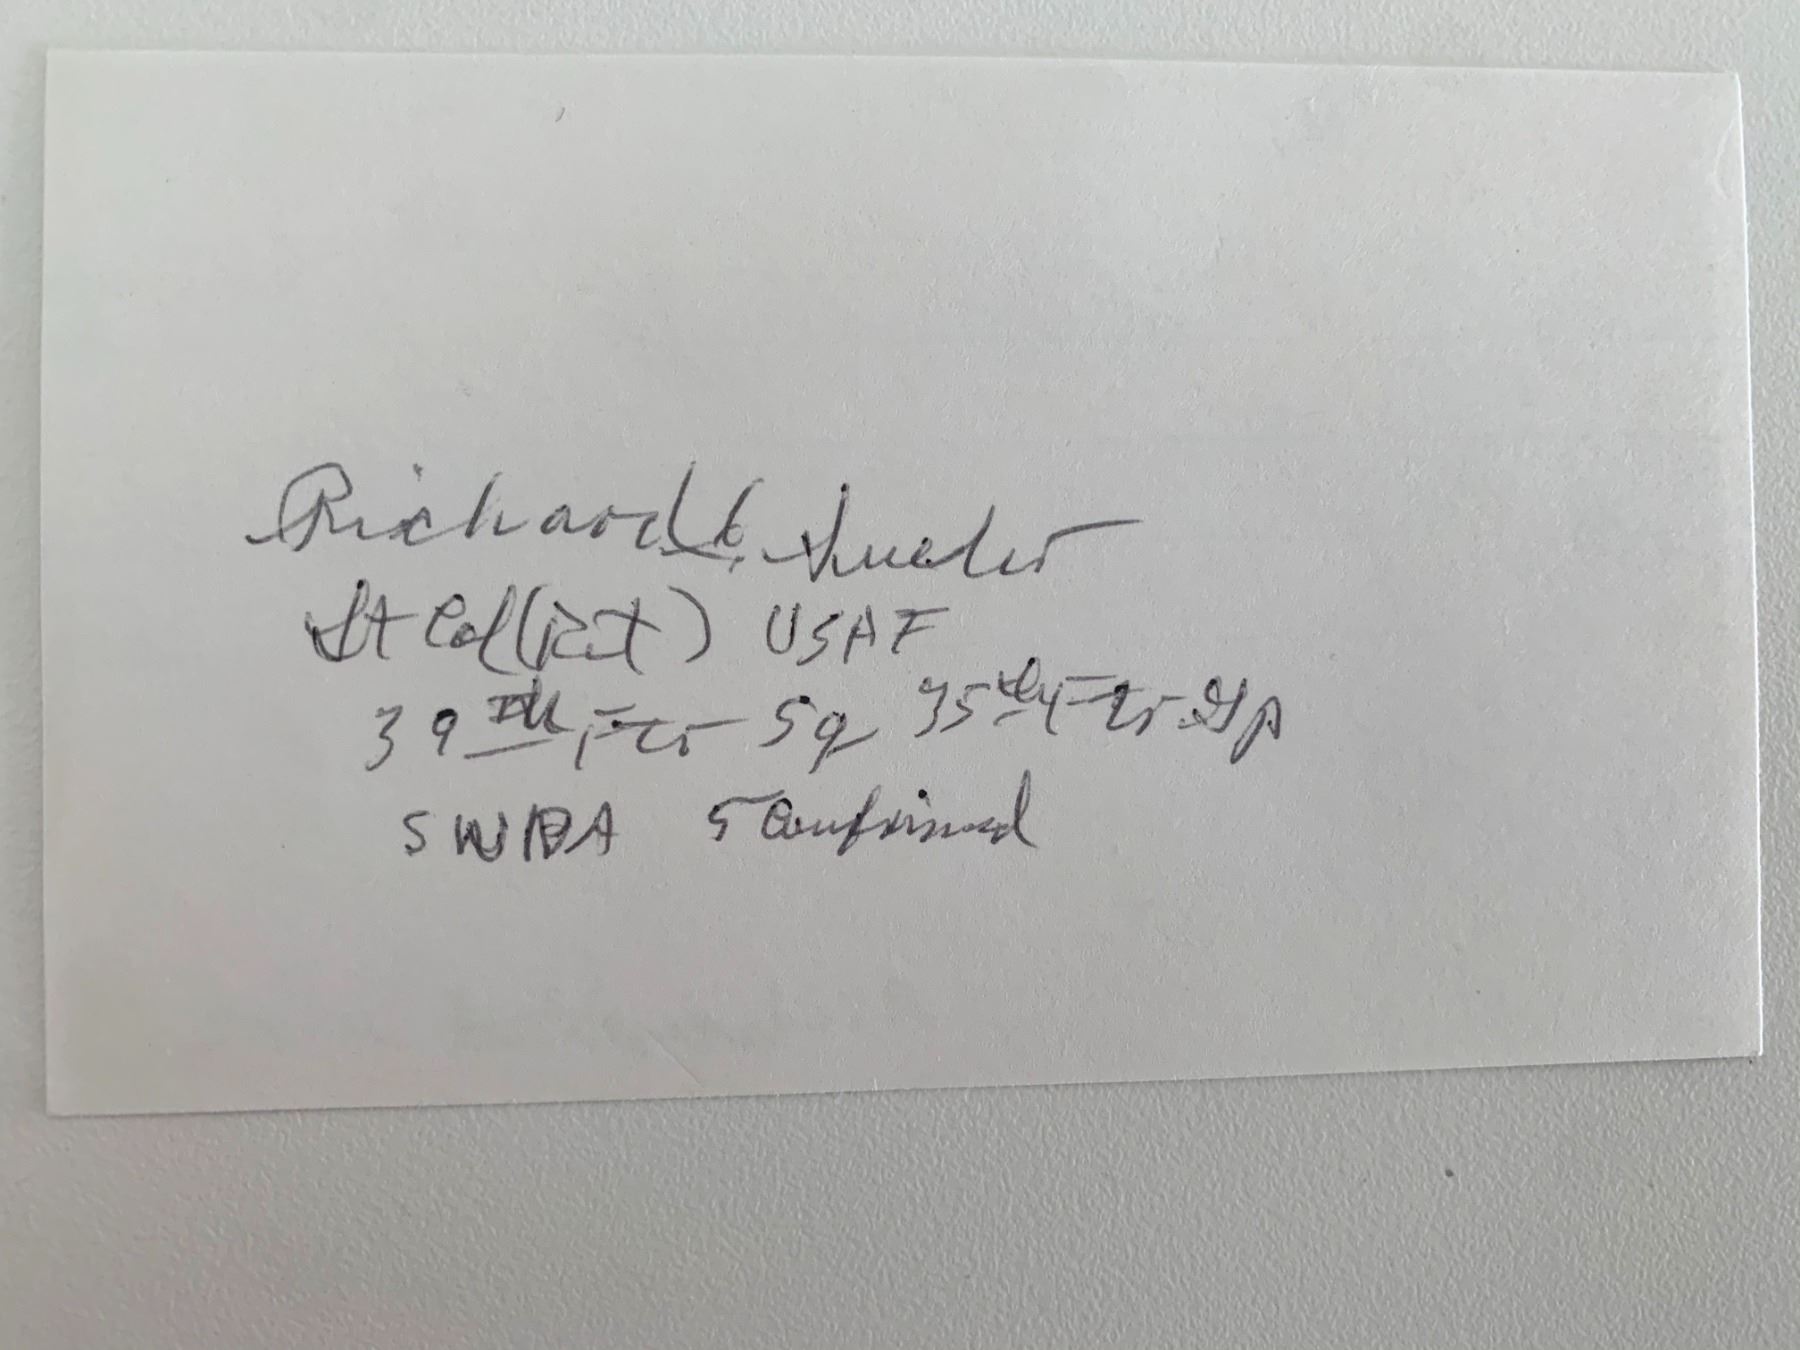 Richard C. Suehr
Lt Col (Ret) USAF
39th Ftr Sq 35th Ftr Gp
SWPA 5 Confirmed